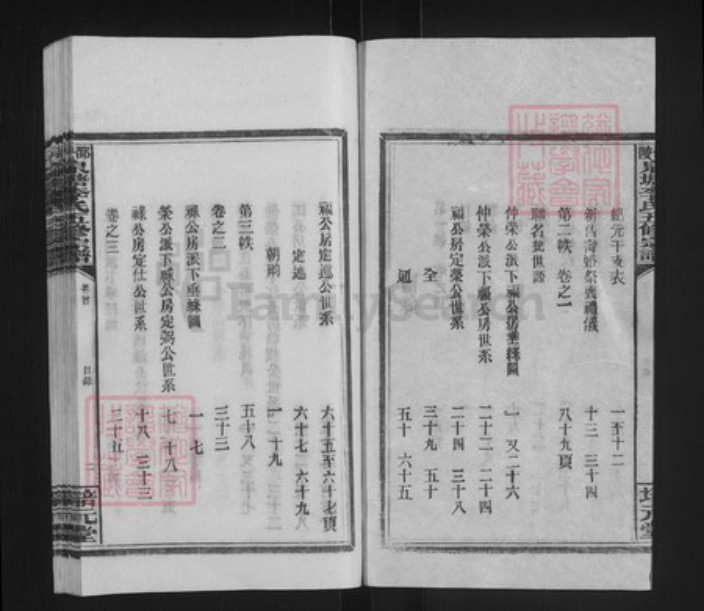 紀元干支表 一至十二
新舊冠婚祭喪禮儀 十三 三十四
第二帙 卷之一 八十九頁
聯名總世譜
仲榮公派下福公房垂絲圖 一 又二十六
仲榮公派下福公房世系 二十二 二十四
福公房定榮公世系 二十四 三十八
全 三十九 五十
通 五十 六十五
福公房定連公世系 六十五至六十七頁
定逃 六十七 六十九
朝 一 十九
第三帙 五十八
卷之二 三十三
祿公房派下垂絲圖 一 七
榮公派下祿公房定弼公世系 七 十八
祿公房定仕公世系 十八 三十三
卷之三 二十五
氏五修宗譜
卷首
目錄
培元堂
FamilySearch